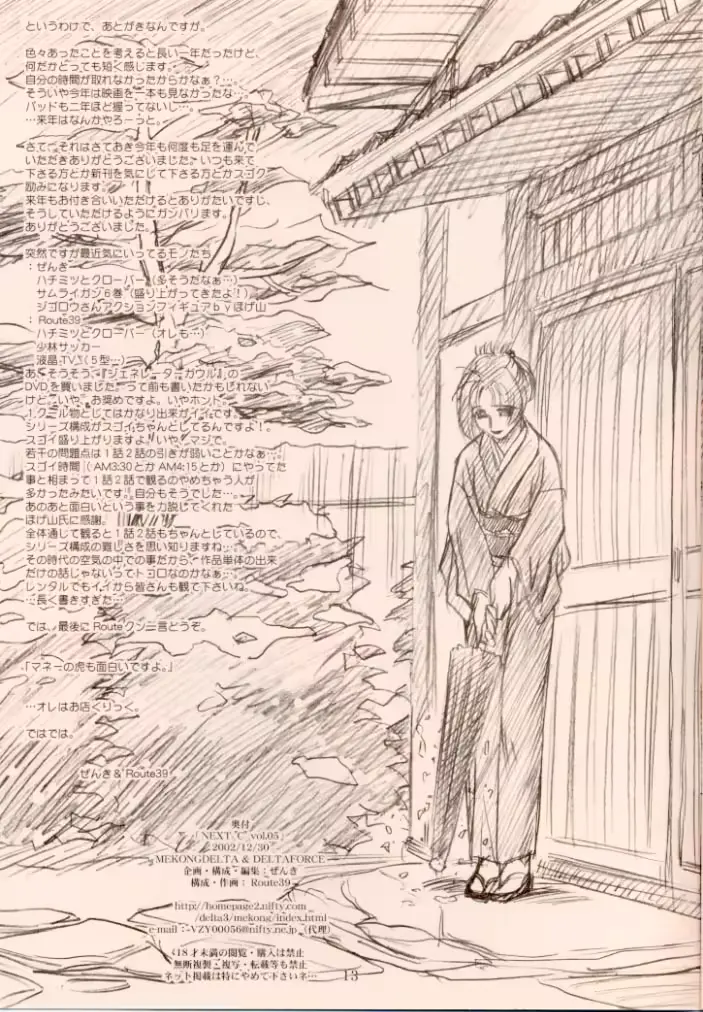 というわけで、あとがきなんですが。
色々あったことを考えると長い一年だったけど、
何だかとっても短く感じます。
自分の時間が取れなかったからかなぁ？…。
そういや今年は映画を一本も見なかったな…。
パッドも二年ほど握ってないし…。
…来年はなんかやろーっと。
さて、それはさておき今年も何度も足を運んで
いただきありがとうございました。いつも来て
下さる方とか新刊を気にして下さる方とかスゴク
励みになります。
来年もお付き合いいただけるとありがたいですし、
そうしていただけるようにガンバリます。
ありがとうございました。
突然ですが最近気にいってるモノたち
：ぜんき
ハチミツとクローバー（多そうだなぁ…）
サムライガン6巻（盛り上がってきたよ！）
ジゴロウさんアクションフィギュアbyほげ山
：Route39
ハチミツとクローバー（オレも…）
少林サッカー
液晶TV（5型…）
あ、そうそう、『ジェネレーターガウル』の
DVDを買いました。って前も書いたかもしれない
けど、いや、お奨めですよ。いやホント。
1クール物としてはかなり出来がイイです。
シリーズ構成がスゴイちゃんとしてるんですよ！。
スゴイ盛り上がりますよ。いや、マジで。
若干の問題点は1話2話の引きが弱いことかなぁ…。
スゴイ時間（AM3:30とかAM4:15とか）にやってた
事と相まって1話2話で観るのやめちゃう人が
多かったみたいです。自分もそうでした…。
あのあと面白いという事を力説してくれた
ほげ山氏に感謝。
全体通じて観ると1話2話もちゃんとしているので、
シリーズ構成の難しさを思い知りますね…。
その時代の空気の中での事だから、作品単体の出来
だけの話じゃないってトコロなのかなぁ…。
レンタルでもイイから皆さんも観て下さいね。
…長く書きすぎた…
では、最後にRouteクン一言どうぞ。
「マネーの虎も面白いですよ。」
…オレはお店くりっく。
ではでは。
ぜんき＆Route39
奥付
「NEXT "C" vol.05」
2002/12/30
MEKONGDELTA & DELTAFORCE
企画・構成・編集：ぜんき
構成・作画：Route39
http://homepage2.nifty.com
/delta3/mekong/index.html
e-mail：VZY00056@nifty.ne.jp（代理）
18才未満の閲覧・購入は禁止
無断複製・複写・転載等も禁止
ネット掲載は特にやめて下さいネ…
13